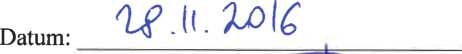 Datum: 28.11.2016